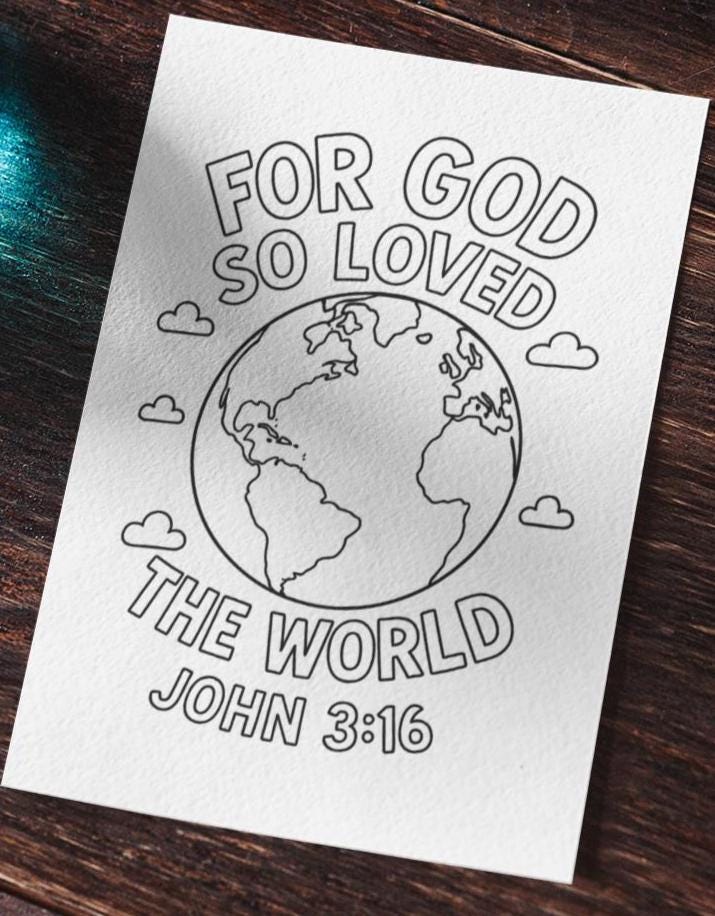 FOR GOD
SO LOVED
THE WORLD
JOHN 3:16